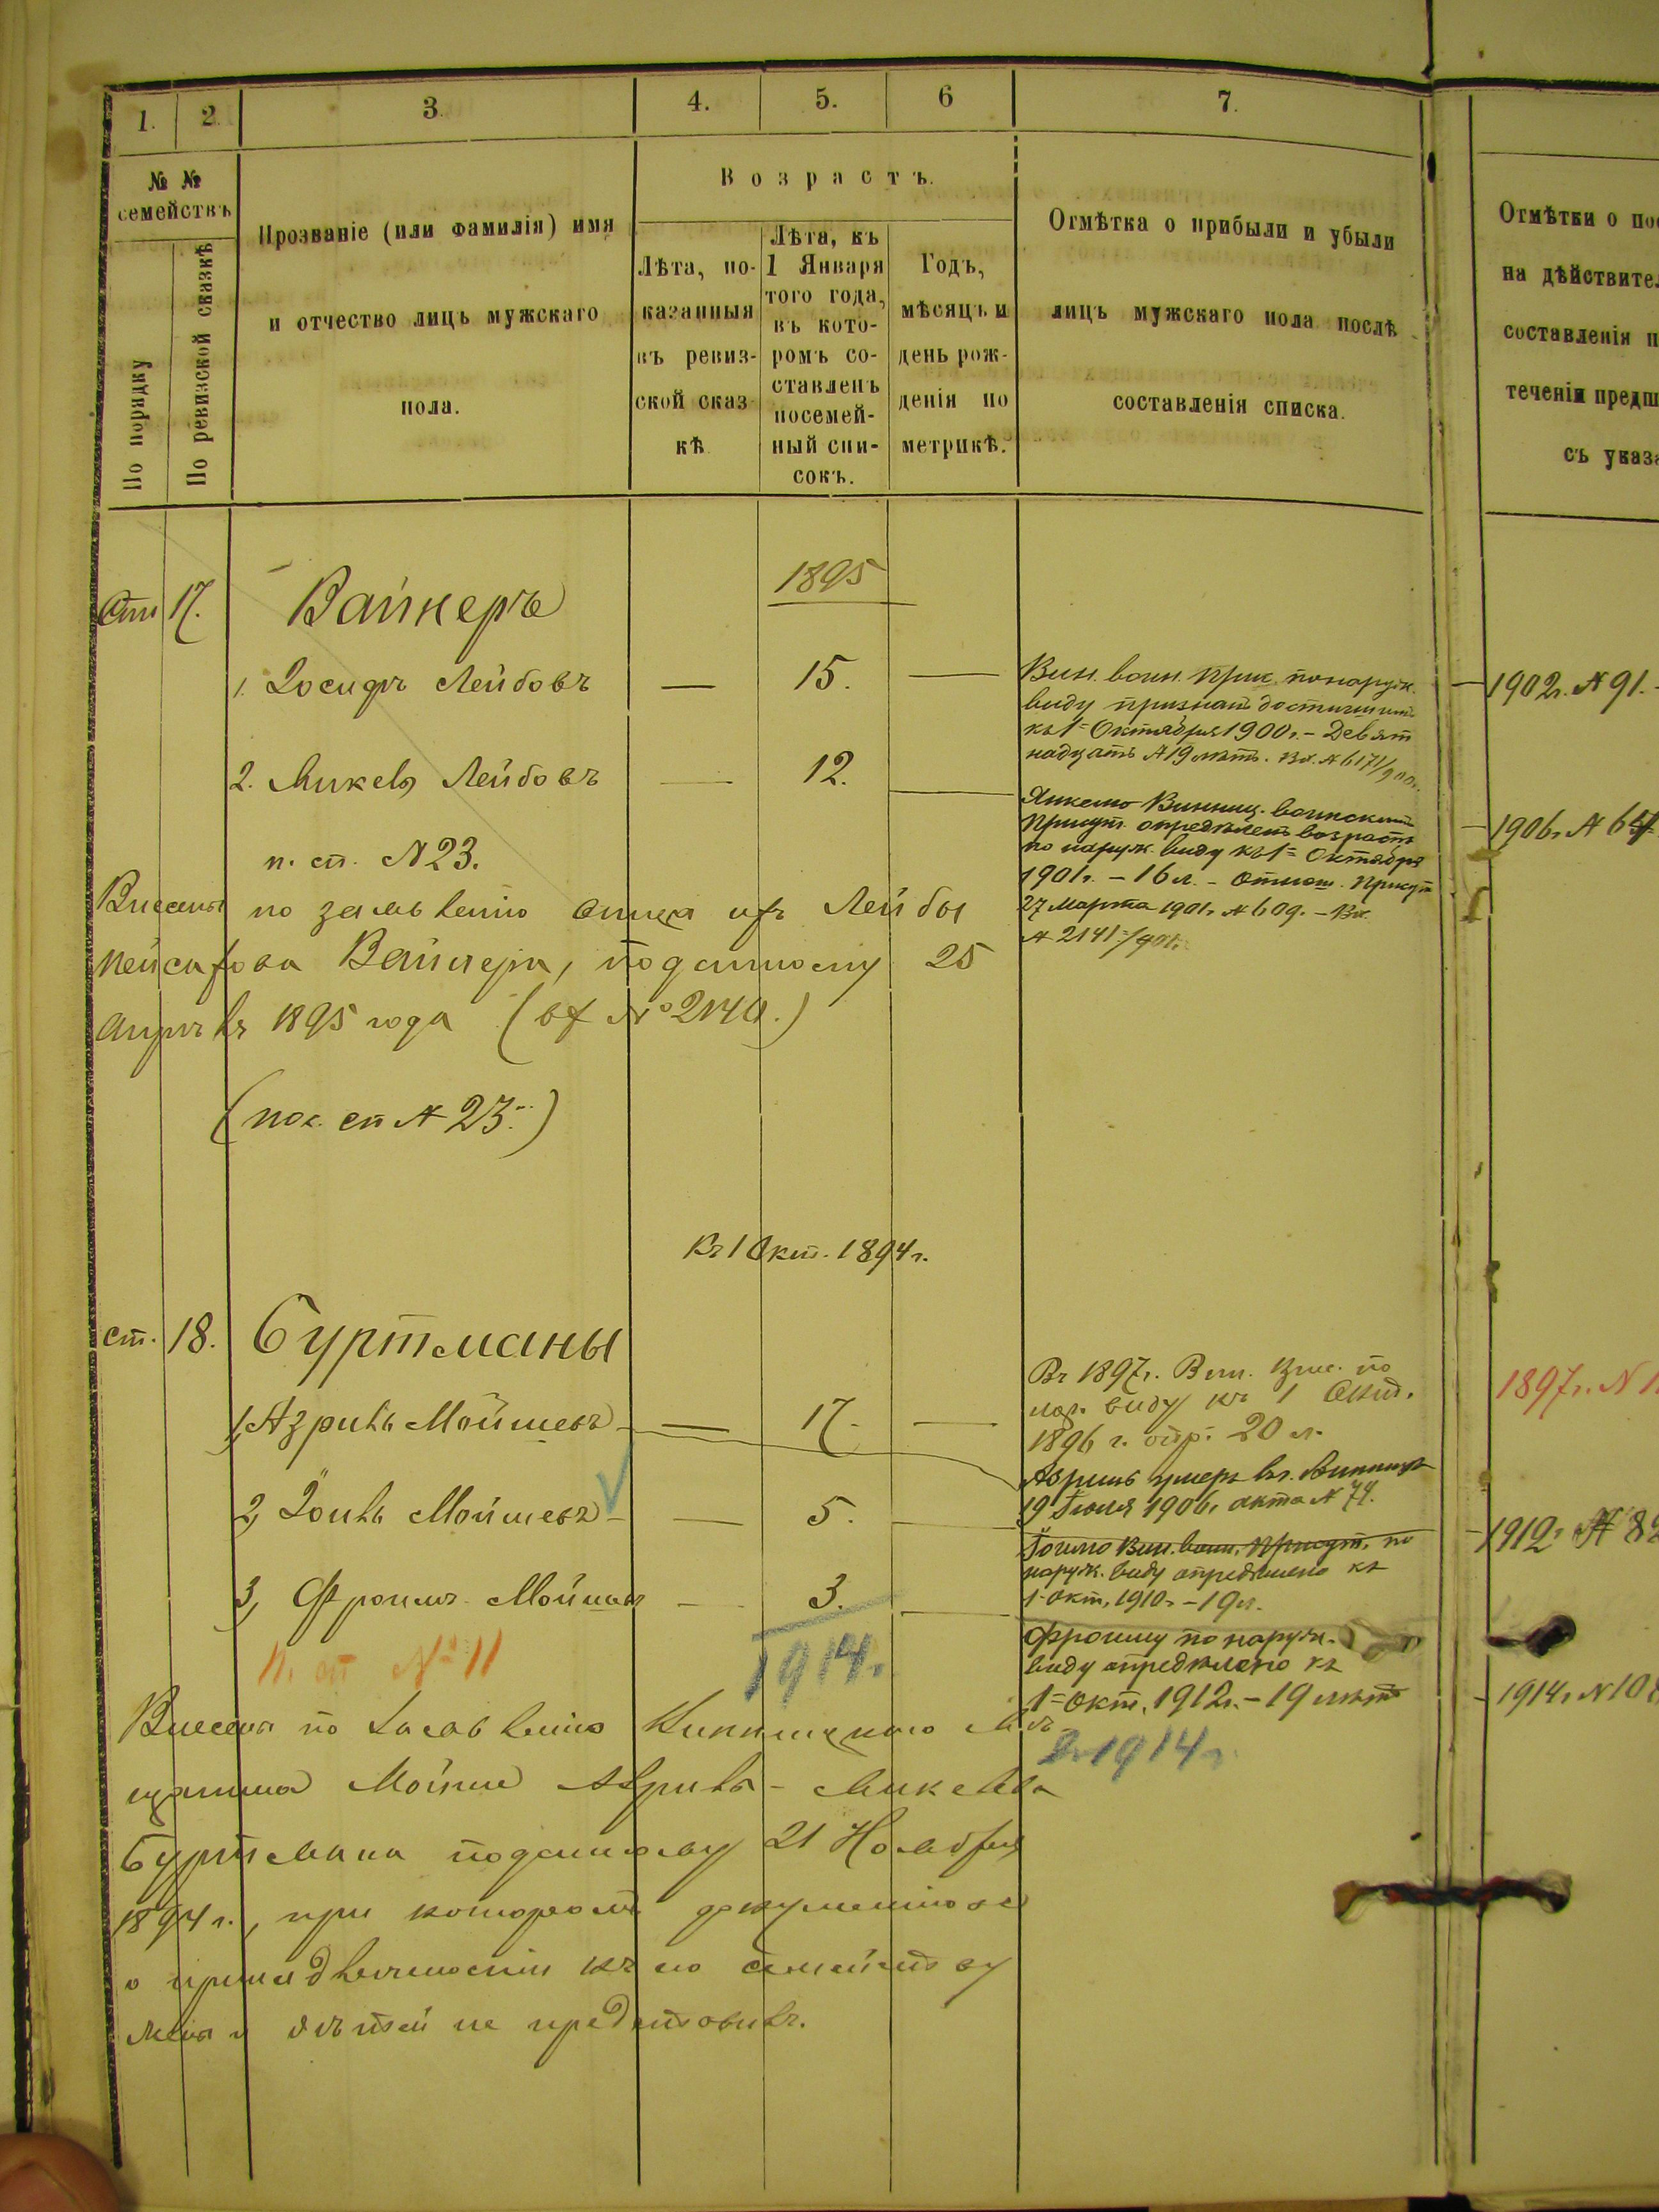 1. 2. 3. 4. 5. 6 7.
№ №
семействъ
По порядку
По ревизской сказкѣ
Прозваніе (или фамилія) имя
и отчество лицъ мужскаго
пола.
Возрастъ.
Лѣта, по-
казанныя
въ ревиз-
ской сказ-
кѣ
Лѣта, къ
1 Января
того года,
въ кото-
ромъ со-
ставленъ
посемей-
ный спи-
сокъ.
Годъ,
мѣсяцъ и
день рож-
денія по
метрикѣ.
Отмѣтка о прибыли и убыли
лицъ мужскаго пола послѣ
составленія списка.
Отмѣтки о по
на дѣйствите
составленія п
теченіи предш
съ указ
1895
17. Вайнеръ
1. Іосифъ Лейбовъ — 15. —
Вин. воин. прис. по наруж.
виду признан достигшимъ
къ 1 Октября 1900 г. – Девят
надцать 19 лѣтъ. Вх. № 6171/900 г.
1902 г. № 91.
2. Лейбовъ — 12. —
Винниц. воинскимъ
присут. опредѣленъ возрастъ
по наруж. виду къ 1 Октября
1901 г. – 16 л. – Отнош. Присут
27 Марта 1901 г. № 609. – Вх.
№ 2141/901 г.
1906 г. № 64
п. сп. № 23.
Внесены по заявленію отца ихъ Лейбы
Пейсахова Вайнера, поданному 25
апрѣля 1895 года (вх № 2140.)
(пос. сп № 23.)
Къ 1 Окт. 1894 г.
ст. 18. Буртманы
1, Азриль Мойшевъ — 17. —
Въ 1897 г. Вин. по
нар. виду къ 1 Окт.
1896 г. опр. 20 л.
Азриль умеръ въ г. Винницѣ
19 Іюля 1906 г. акта № 74.
1897 г. №
2, Іоиль Мойшевъ — 5. —
Вин. воин. Присут. по
наруж. виду опредѣлено къ
1 окт. 1910 г. – 19 л.
1912 г. № 82
3, Фроимъ Мойшевъ — 3. —
Фроиму по наруж.
виду опредѣлено къ
1 окт. 1912 г. – 19 лѣтъ
1914 г. № 10
п. сп № 11
1914 г.
1914 г.
Внесены по заявленію Винницкаго мѣ-
щанина Мойше Азриль-
Буртмана поданному 21 Ноября
1894 г., при которомъ документовъ
о принадлежности къ его семейству
и дѣтей не представилъ.